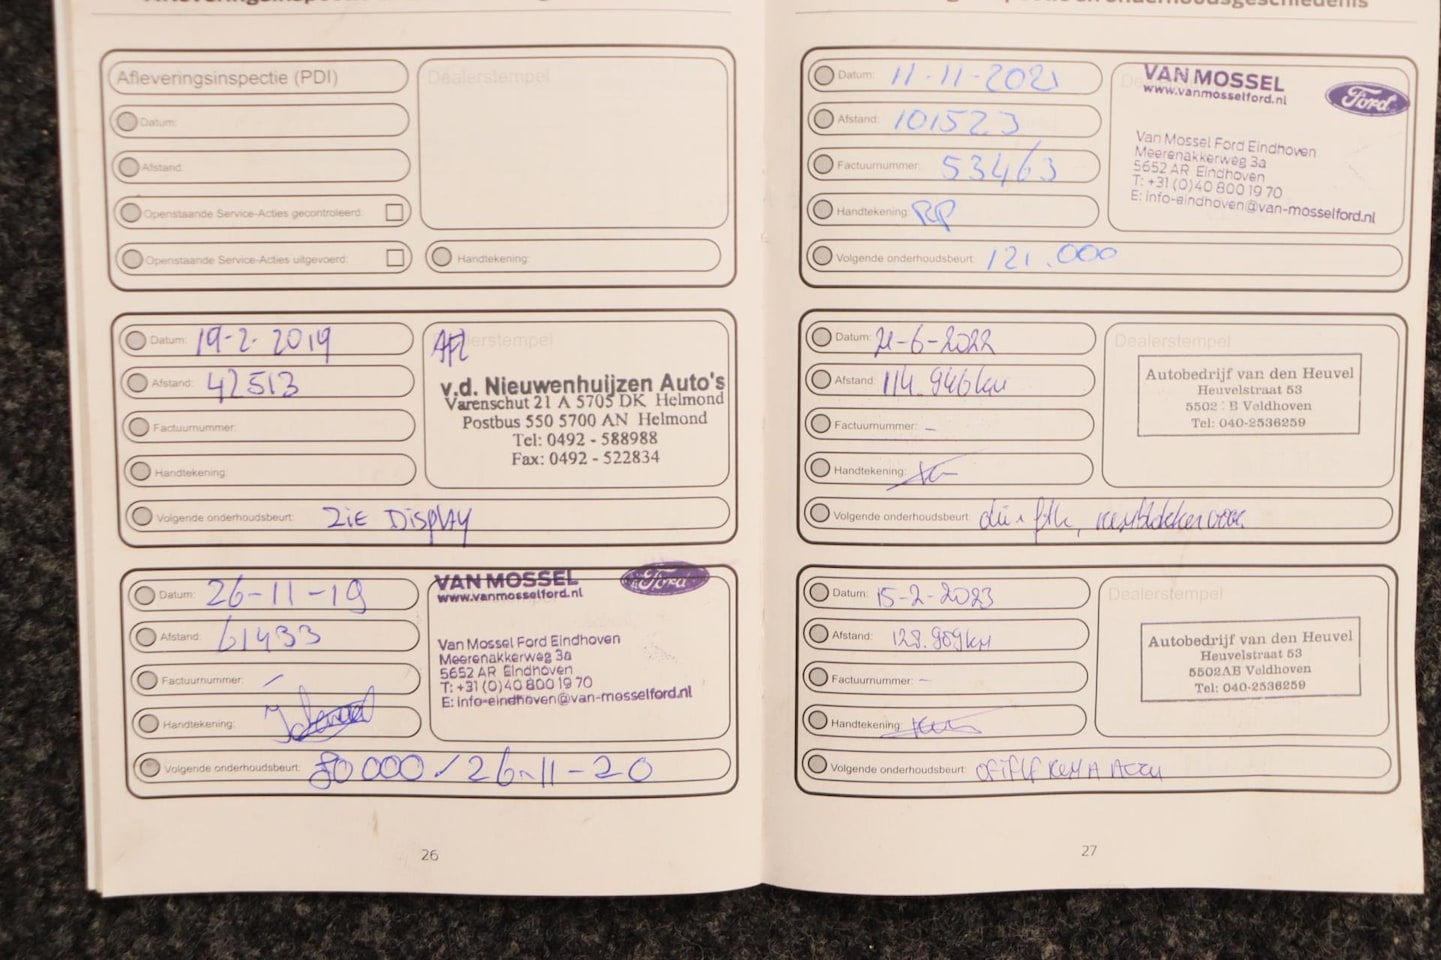 Afleveringsinspectie (PDI)
Dealerstempel
Datum:
Afstand:
Openstaande Service-Acties gecontroleerd:
Openstaande Service-Acties uitgevoerd:
Handtekening:
Datum: 19-2-2019
Afstand: 42513
Factuurnummer:
Handtekening:
Volgende onderhoudsbeurt: Zie Display
Afl
v.d. Nieuwenhuijzen Auto's
Varenschut 21 A 5705 DK Helmond
Postbus 550 5700 AN Helmond
Tel: 0492 - 588988
Fax: 0492 - 522834
Datum: 26-11-19
Afstand: 61433
Factuurnummer: -
Handtekening:
Volgende onderhoudsbeurt: 80000 / 26-11-20
VAN MOSSEL
www.vanmosselford.nl
Ford
Van Mossel Ford Eindhoven
Meerenakkerweg 3a
5652 AR Eindhoven
T: +31 (0)40 800 19 70
E: info-eindhoven@van-mosselford.nl
26
Datum: 11-11-2021
Afstand: 101523
Factuurnummer: 53463
Handtekening: RP
Volgende onderhoudsbeurt: 121.000
VAN MOSSEL
www.vanmosselford.nl
Ford
Van Mossel Ford Eindhoven
Meerenakkerweg 3a
5652 AR Eindhoven
T: +31 (0)40 800 19 70
E: info-eindhoven@van-mosselford.nl
Datum: 21-6-2022
Afstand: 114.946km
Factuurnummer: -
Handtekening:
Volgende onderhoudsbeurt:
Dealerstempel
Autobedrijf van den Heuvel
Heuvelstraat 53
5502 B Veldhoven
Tel: 040-2536259
Datum: 15-2-2023
Afstand: 128.909km
Factuurnummer: -
Handtekening:
Volgende onderhoudsbeurt:
Dealerstempel
Autobedrijf van den Heuvel
Heuvelstraat 53
5502AB Veldhoven
Tel: 040-2536259
27